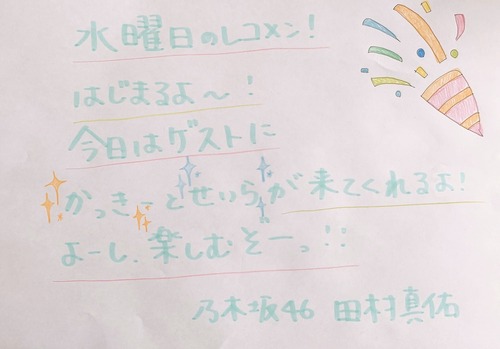 水曜日のレコメン!
はじまるよ〜!
今日はゲストに
かっきーとせいらが来てくれるよ!
よーし、楽しむぞーっ!!
乃木坂46 田村真佑